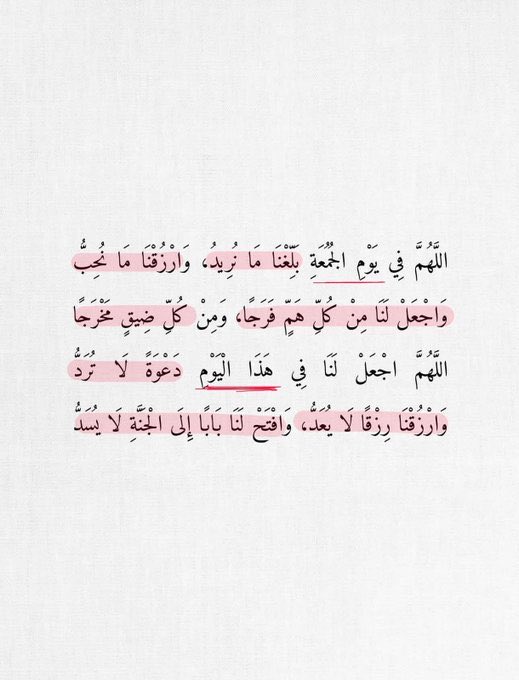 اللَّهُمَّ فِي يَوْمِ الجُمُعَةِ بَلِّغْنَا مَا نُرِيدُ، وَارْزُقْنَا مَا نُحِبُّ
وَاجْعَلْ لَنَا مِنْ كُلِّ هَمٍّ فَرَجًا، وَمِنْ كُلِّ ضِيقٍ مَخْرَجًا
اللَّهُمَّ اجْعَلْ لَنَا فِي هَذَا الْيَوْمِ دَعْوَةً لَا تُرَدُّ
وَارْزُقْنَا رِزْقًا لَا يُعَدُّ، وَافْتَحْ لَنَا بَابًا إِلَى الْجَنَّةِ لَا يُسَدُّ